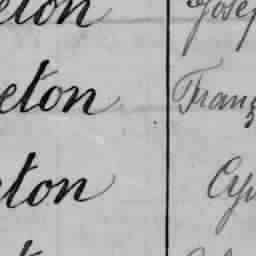 eton Josep
eton Franç
eton Cyr